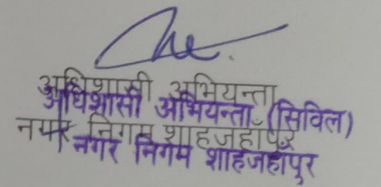 अधिशासी अभियन्ता
अधिशासी अभियन्ता (सिविल)
नगर निगम शाहजहाँपुर
नगर निगम शाहजहाँपुर